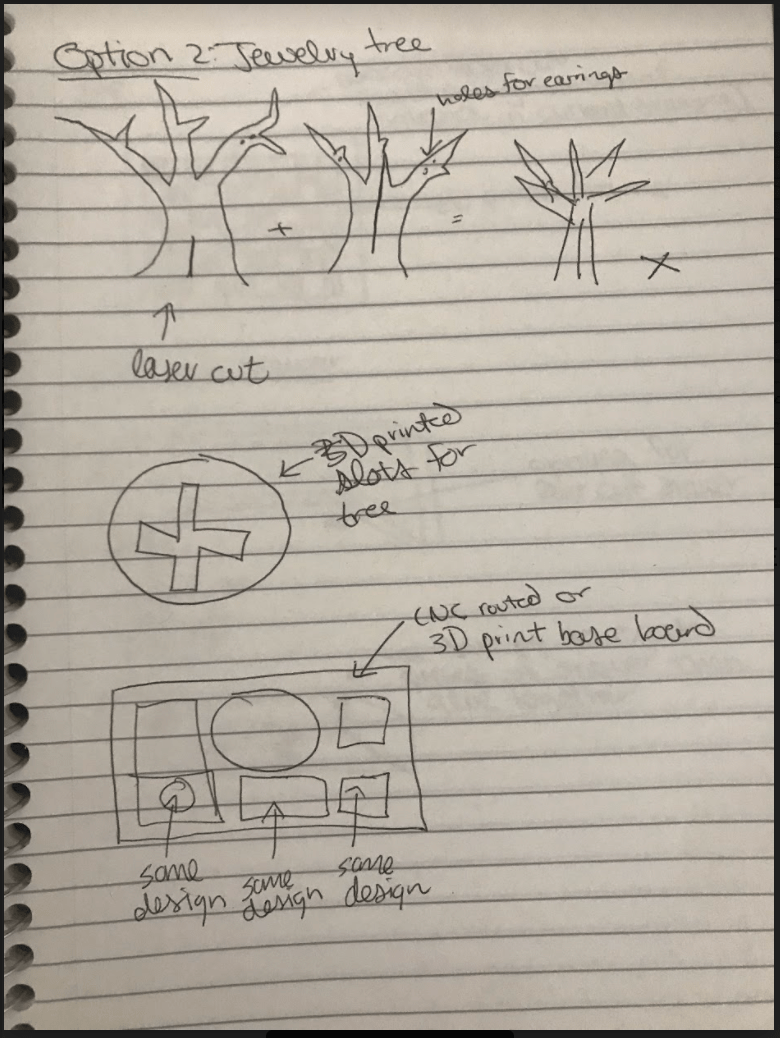 Option 2: Jewelry tree
holes for earrings
+
=
laser cut
3D printed
slots for
tree
CNC routed or
3D print base board
some
design
some
design
some
design